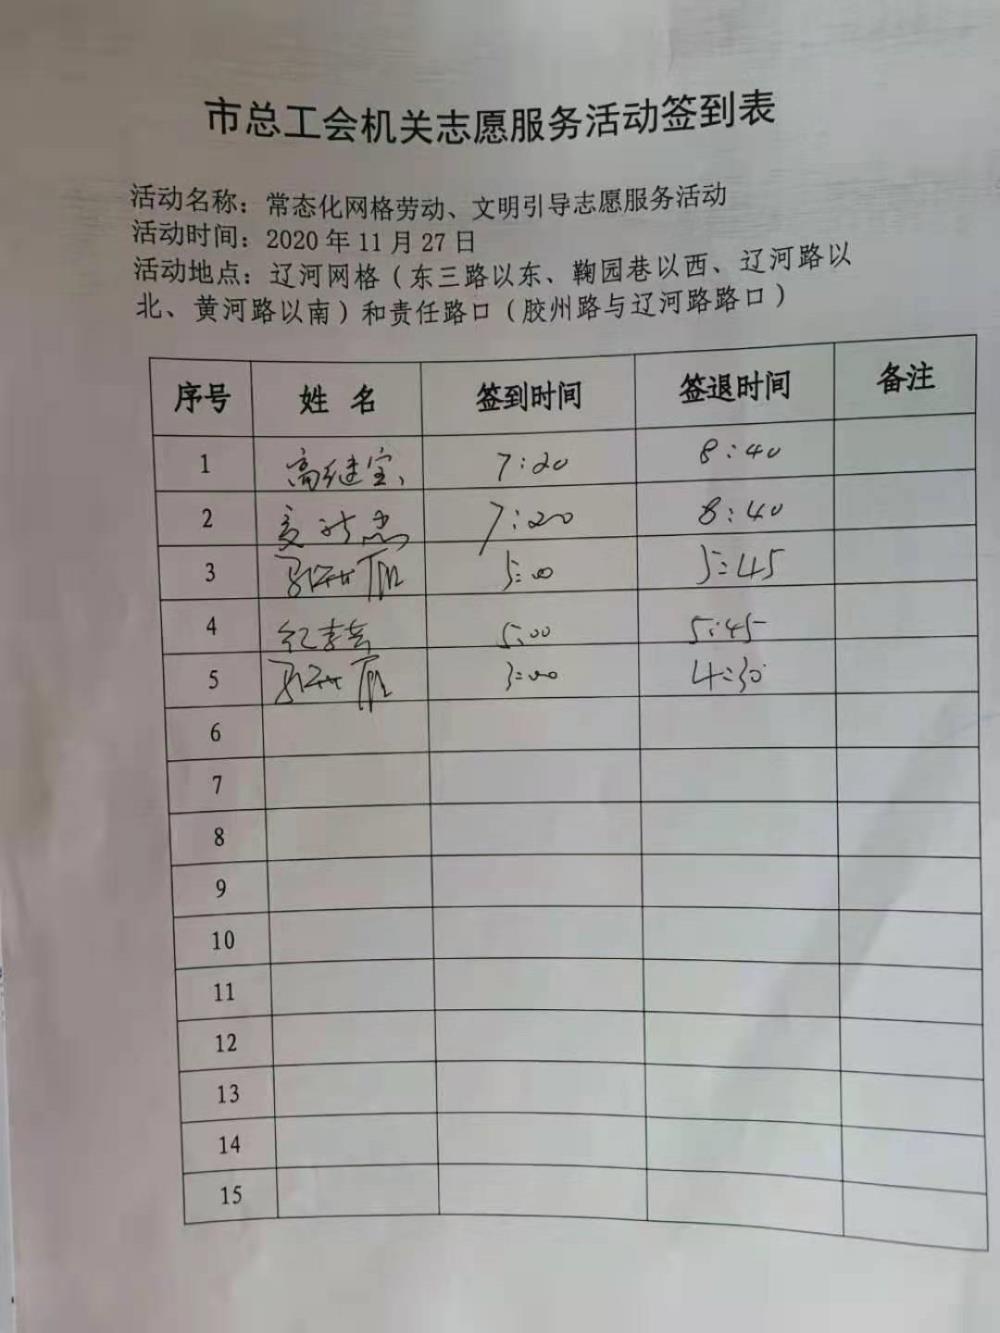 市总工会机关志愿服务活动签到表
活动名称：常态化网格劳动、文明引导志愿服务活动
活动时间：2020年11月27日
活动地点：辽河网格（东三路以东、鞠园巷以西、辽河路以
北、黄河路以南）和责任路口（胶州路与辽河路路口）
序号 姓名 签到时间 签退时间 备注
1 高继宝 7:20 8:40
2 7:20 8:40
3 5:00 5:45
4 5:00 5:45
5 3:00 4:30
6
7
8
9
10
11
12
13
14
15